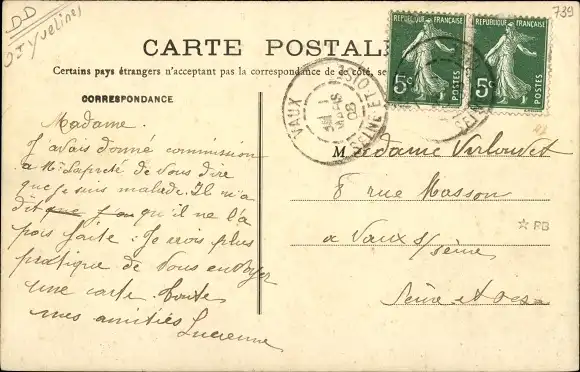 DD
Yvelines
739
CARTE POSTALE
Certains pays étrangers n'acceptant pas la correspondance de ce côté, se
RÉPUBLIQUE FRANÇAISE
5c
RÉPUBLIQUE FRANÇAISE
5c
VAUX
SEINE-ET-OISE
MARS
08
CORRESPONDANCE
Madame.
J'avais donné commission
a Mr Lapreté de vous dire
que je suis malade. Il m'a
dit qu'il ne l'a
pois faite : Je crois plus
pratique de vous envoyer
une carte. Toute
mes amitiés
Lucienne
Madame Verlouvet
8 rue Masson
a Vaux s/seine
Seine et Oise
☆ PB